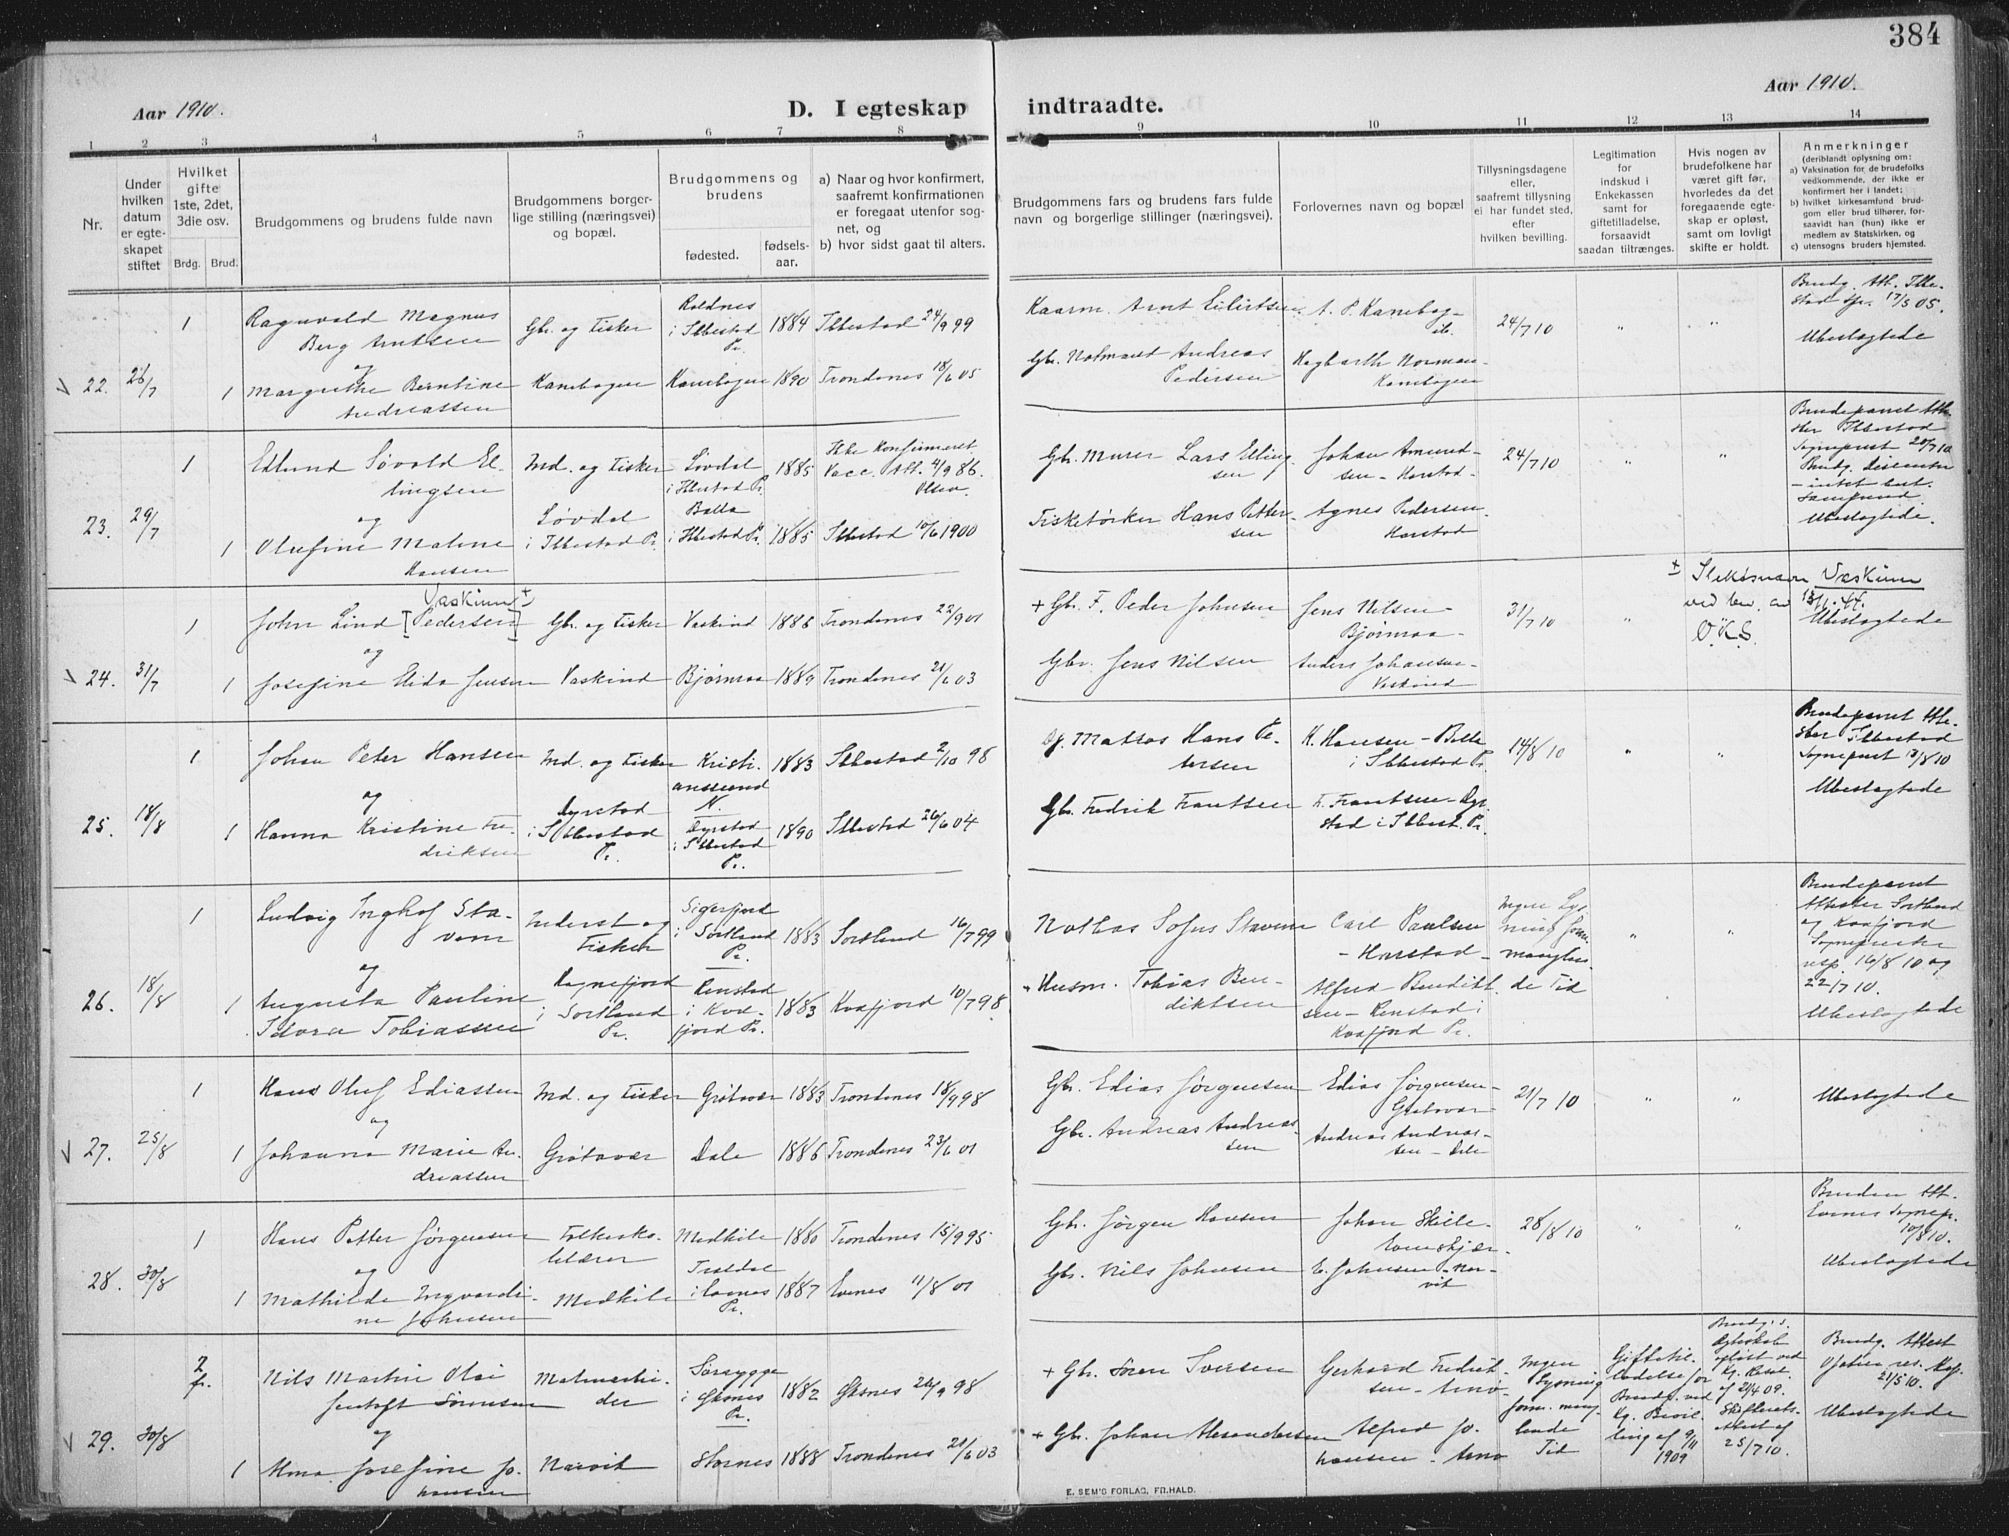 384
Aar 1910.
D. I egteskap indtraadte.
Aar 1910.
1 2 3 4 5 6 7 8 9 10 11 12 13 14
Nr.
Under hvilken datum er egteskapet stiftet
Hvilket gifte 1ste, 2det, 3die osv.
Brdg. Brud.
Brudgommens og brudens fulde navn
Brudgommens borgerlige stilling (næringsvei) og bopæl.
Brudgommens og brudens
fødested.
fødselsaar.
a) Naar og hvor konfirmert, saafremt konfirmationen er foregaat utenfor sognet, og
b) hvor sidst gaat til alters.
Brudgommens fars og brudens fars fulde navn og borgerlige stillinger (næringsvei).
Forlovernes navn og bopæl
Tillysningsdagene eller, saafremt tillysning ei har fundet sted, efter hvilken bevilling.
Legitimation for indskud i Enkekassen samt for giftetilladelse, forsaavidt saadan tiltrænges.
Hvis nogen av brudefolkene har været gift før, hvorledes da det foregaaende egteskap er opløst, samt om lovligt skifte er holdt.
Anmerkninger
(deriblandt oplysning om:
a) Vaksination for de brudefolks vedkommende, der ikke er konfirmert her i landet;
b) hvilket kirkesamfund brudgom eller brud tilhører, forsaavidt han (hun) ikke er medlem av Statskirken, og
c) utensogns bruders hjemsted.
22. 26/7 1
Ragnvald Magnus Berg Arntsen
Gbr. og Fisker
Roldnes i Ibbestad Pr.
1884 Ibbestad 24/9 99
Kaarm. Arnt Eilertsen
A. P. Kanebog - ib.
24/7 10 " "
Brudg. Att. Ibbestad Spr. 17/5 05.
Ubeslægtede
og
1 Margrethe Berntine Andreassen
Kanebogen Kanebogen 1890 Trondenes 18/6 05
Gbr. Andreas Pedersen
Hagbarth Norman - Kanebogen
23. 29/7 1
Edlund Søvald Ellingsen
Ind. og Fisker
Løvdal i Ibbestad Pr.
1885 Ikke Konfirmeret. Vacc. Att. 4/9 86. Olsen.
Gbr. Murer Lars Ellingsen
Johan Amundsen - Harstad
24/7 10 " "
Brudeparret Attester Ibbestad Sogneprest 20/7 10
Brudg. Dissenter - intet best. Samfund.
Ubeslægtede.
og
1 Olufine Maline Hansen
Løvdal i Ibbestad Pr.
Balla i Ibbestad Pr.
1885 Ibbestad 10/6 1900
Fisketørker Hans Pettersen
Agnes Pedersen Harstad
24. 31/7 1
John Lind [Pedersen] Vaskinn +
Gbr. og Fisker Vaskind 1886 Trondenes 22/9 01
+ Gbr. F. Peder Johnsen
Jens Nilsen - Bjørnraa -
31/7 10 "
+ Slektsnavn Vaskinn ved bev. av 13/1.44. O.K.S.
Ubeslægtede
og
1 Josefine Elida Jensen
Vaskind Bjørnraa 1889 Trondenes 21/6 03
Gbr. Jens Nilsen
Anders Johansen - Vaskind
25. 18/8 1
Johan Peter Hansen
Ind. og Fisker
Kristianssund N.
1883 Ibbestad 2/10 98
Matros Hans Petersen
K. Hansen - Balla i Ibbestad Pr.
14/8 10 " "
Brudeparret Attester Ibbestad Sogneprest 13/8 10
Ubeslægtede
og
1 Hanna Kristine Fredriksen
Dyrstad i Ibbestad Pr.
Dyrstad i Ibbestad Pr.
1890 Ibbestad 26/6 04
Gbr. Fredrik Frantsen
F. Frantsen - Dyrstad i Ibbest. Pr.
26. 18/8 1
Ludvig Inghof Stavem
Inderst og Fisker
Sigerfjord i Sortland Pr.
1883 Sortland 16/7 99
Nathas Sofus Stavem
Carl Paulsen - Harstad -
Ingen Lysning form. manglende Tid
" "
Brudeparret Attester Sortland og Kvæfjord Sogneprester resp. 16/8 10 og 22/7 10.
Ubeslægtede
og
1 Augusta Pauline Idora Tobiassen
i Sortland Pr.
Renstad i Kvæfjord Pr.
1883 Kvæfjord 10/7 98
Husm. Tobias Bendiktsen
Alfred Bendiktsen - Renstad i Kvæfjord Pr.
27. 25/8 1
Hans Oluf Ediassen
Ind. og Fisker Grøtavær 1883 Trondenes 18/9 98
Gbr. Edias Jørgensen
Edias Jørgensen - Grøtavær
21/7 10 " "
Ubeslægtede
og
1 Johanna Marie Andreassen
Grøtavær Dale 1886 Trondenes 23/6 01
Gbr. Andreas Andreassen
Andreas Andreassen - Dale
28. 30/8 1
Hans Petter Jørgensen
Folkeskolelærer
Medkile 1880 Trondenes 15/9 95
Gbr. Jørgen Hansen
Johan Skille - Evenskjær -
28/8 10 " "
Bruden Att. Evenes Sognepr. 10/8 10.
Ubeslægtede
og
1 Mathilde Ingvardine Johnsen
Medkile
Traldal i Evenes Pr.
1887 Evenes 11/8 01
Gbr. Nils Johnsen
E. Johnsen - Narvik
29. 30/8 2 fr.
Nils Martin Olai Jentoft Sørensen
Malmarbeider
i Øksnes Pr.
1882 Øksnes 26/9 98
+ Gbr. Søren Iversen
Gerhard Fredriksen - Arnø -
Ingen Lysning form. manglende Tid
Giftetilladelse for Brudg. ved Kg. Bevilling af 9/11 1909
Brudg.s Egteskab opløst ved Kg. Resol. af 21/4 09. Skifterets Attest af 25/7 10.
Brudg. Attest Ofoten res. Kap. 21/5 10.
Ubeslægtede
og
1 Alma Josefine Johansen
Narvik Stornes 1888 Trondenes 21/6 03
+ Gbr. Johan Alexandersen
Alfred Johansen - Arnø
E. SEM'S FORLAG, FR.HALD.